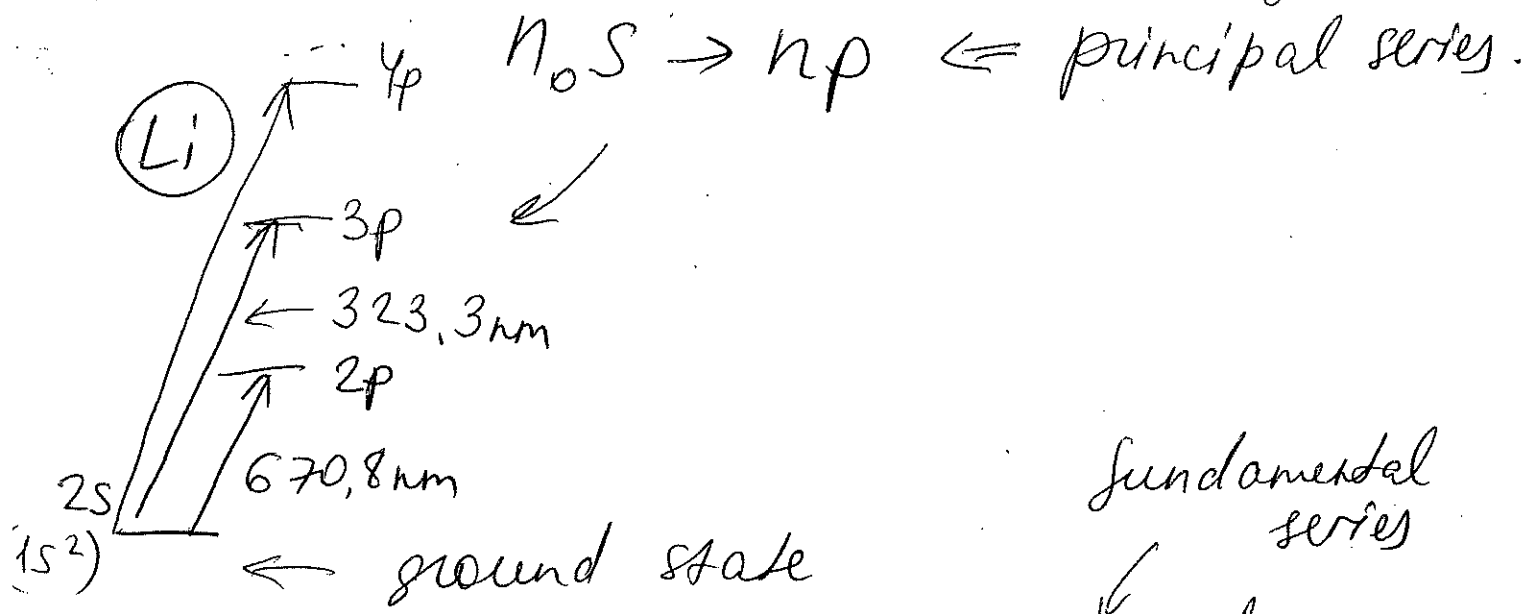 4p n₀s → np ⇐ principal series.
Li
3p
← 323,3nm
2p
670,8nm
2s
(1s²)
← ground state
fundamental
series